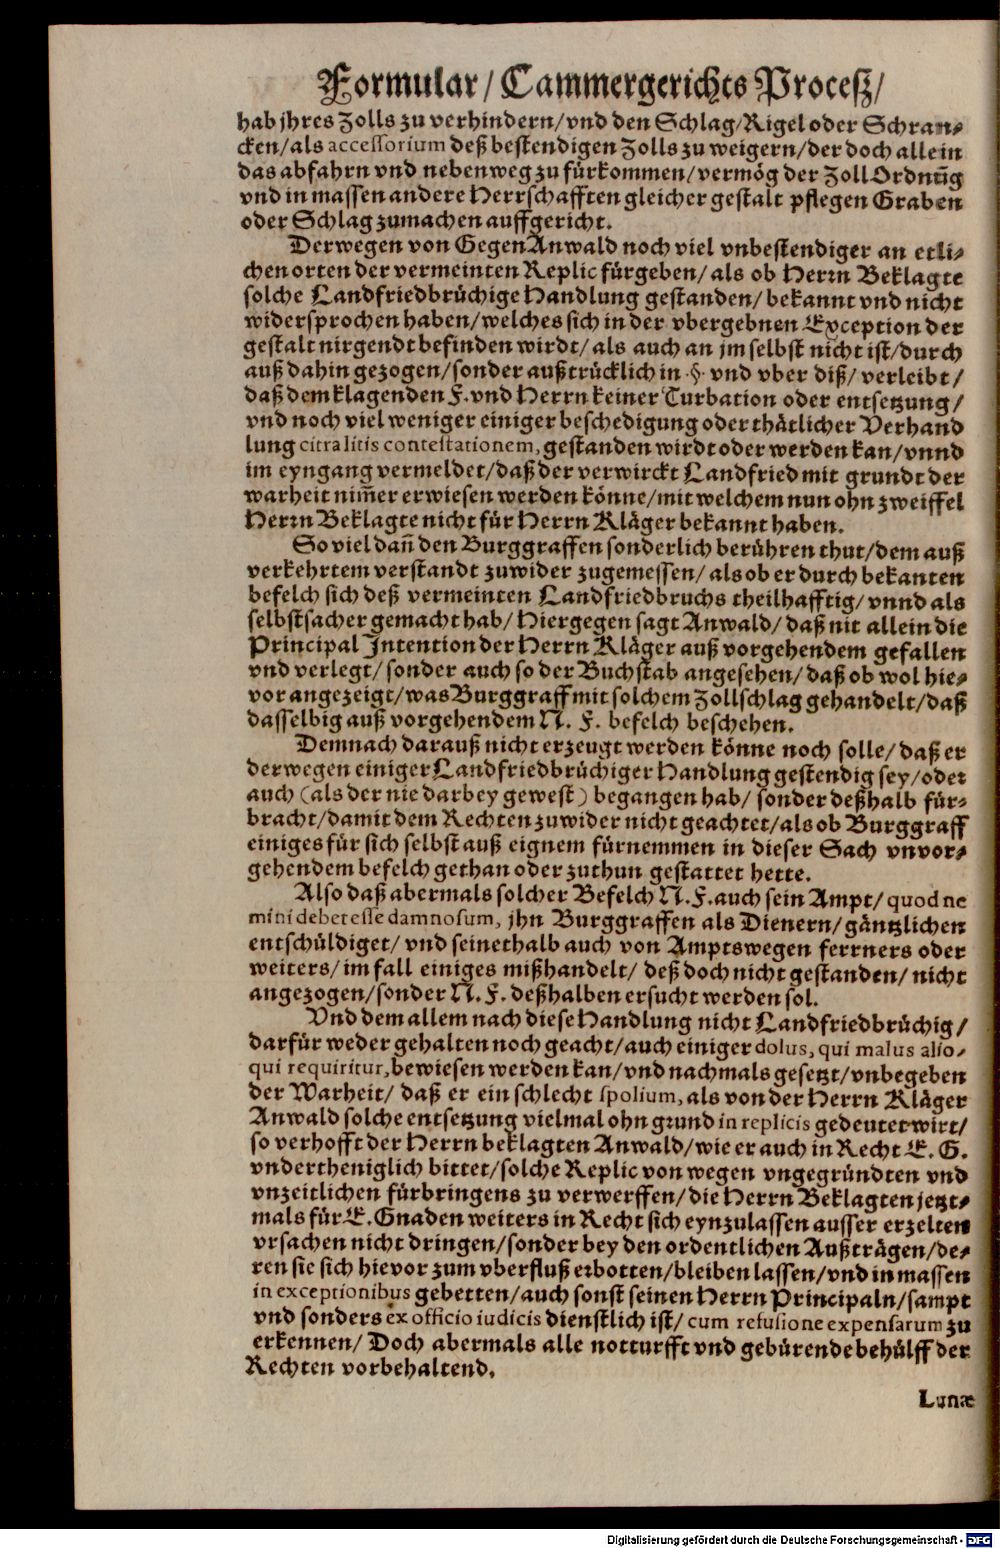 Formular/ Cammergerichts Proceß/
hab jhres Zolls zu verhindern/ vnd den Schlag/ Rigel oder Schran-
cken/ als accessorium deß bestendigen Zolls zu weigern/ der doch allein
das abfahrn vnd nebenweg zu fürkommen/ vermög der Zoll Ordnūg
vnd in massen andere Herrschafften gleicher gestalt pflegen Graben
oder Schlag zumachen auffgericht.
Derwegen von GegenAnwald noch viel vnbestendiger an etli-
chen orten der vermeinten Replic fürgeben/ als ob Herrn Beklagte
solche Landfriedbrüchige Handlung gestanden/ bekannt vnd nicht
widersprochen haben/ welches sich in der vbergebnen Exception der
gestalt nirgendt befinden wirdt/ als auch an jm selbst nicht ist/ durch
auß dahin gezogen/ sonder außtrücklich in .§. vnd vber diß/ verleibt/
daß dem klagenden F. vnd Herrn keiner Turbation oder entsetzung/
vnd noch viel weniger einiger beschedigung oder thätlicher Verhand
lung citra litis contestationem, gestanden wirdt oder werden kan/ vnnd
im eyngang vermeldet/ daß der verwirckt Landfried mit grundt der
warheit nim̄er erwiesen werden könne/ mit welchem nun ohn zweiffel
Herrn Beklagte nicht für Herrn Kläger bekannt haben.
So viel dañ den Burggraffen sonderlich berühren thut/ dem auß
verkehrtem verstandt zuwider zugemessen/ als ob er durch bekanten
befelch sich deß vermeinten Landfriedbruchs theilhafftig/ vnnd als
selbstsacher gemacht hab/ Hiergegen sagt Anwald/ daß nit allein die
Principal Intention der Herrn Kläger auß vorgehendem gefallen
vnd verlegt/ sonder auch so der Buchstab angesehen/ daß ob wol hie-
vor angezeigt/ was Burggraff mit solchem Zollschlag gehandelt/ daß
dasselbig auß vorgehendem N. F. befelch beschehen.
Demnach darauß nicht erzeugt werden könne noch solle/ daß er
derwegen einiger Landfriedbrüchiger Handlung gestendig sey/ oder
auch (als der nie darbey gewest) begangen hab/ sonder deßhalb für-
bracht/ damit dem Rechten zuwider nicht geachtet/ als ob Burggraff
einiges für sich selbst auß eignem fürnemmen in dieser Sach vnvor-
gehendem befelch gethan oder zuthun gestattet hette.
Also daß abermals solcher Befelch N. F. auch sein Ampt/ quod ne
mini debet esse damnosum, jhn Burggraffen als Dienern/ gäntzlichen
entschüldiget/ vnd seinethalb auch von Amptswegen ferrners oder
weiters/ im fall einiges mißhandelt/ deß doch nicht gestanden/ nicht
angezogen/ sonder N. F. deßhalben ersucht werden sol.
Vnd dem allem nach diese Handlung nicht Landfriedbrüchig/
darfür weder gehalten noch geacht/ auch einiger dolus, qui malus alio-
qui requiritur, bewiesen werden kan/ vnd nachmals gesetzt/ vnbegeben
der Warheit/ daß er ein schlecht spolium, als von der Herrn Kläger
Anwald solche entsetzung vielmal ohn grund in replicis gedeutet wirt/
so verhofft der Herrn beklagten Anwald/ wie er auch in Recht E. G.
vndertheniglich bittet/ solche Replic von wegen vngegründten vnd
vnzeitlichen fürbringens zu verwerffen/ die Herrn Beklagten jetzt-
mals für E. Gnaden weiters in Recht sich eynzulassen ausser erzelten
vrsachen nicht dringen/ sonder bey den ordentlichen Außträgen/ de-
ren sie sich hievor zum vberfluß erbotten/ bleiben lassen/ vnd in massen
in exceptionibus gebetten/ auch sonst seinen Herrn Principaln/ sampt
vnd sonders ex officio iudicis dienstlich ist/ cum refusione expensarum zu
erkennen/ Doch abermals alle notturfft vnd gebürende behülff der
Rechten vorbehaltend.
Lunæ
Digitalisierung gefördert durch die Deutsche Forschungsgemeinschaft - DFG